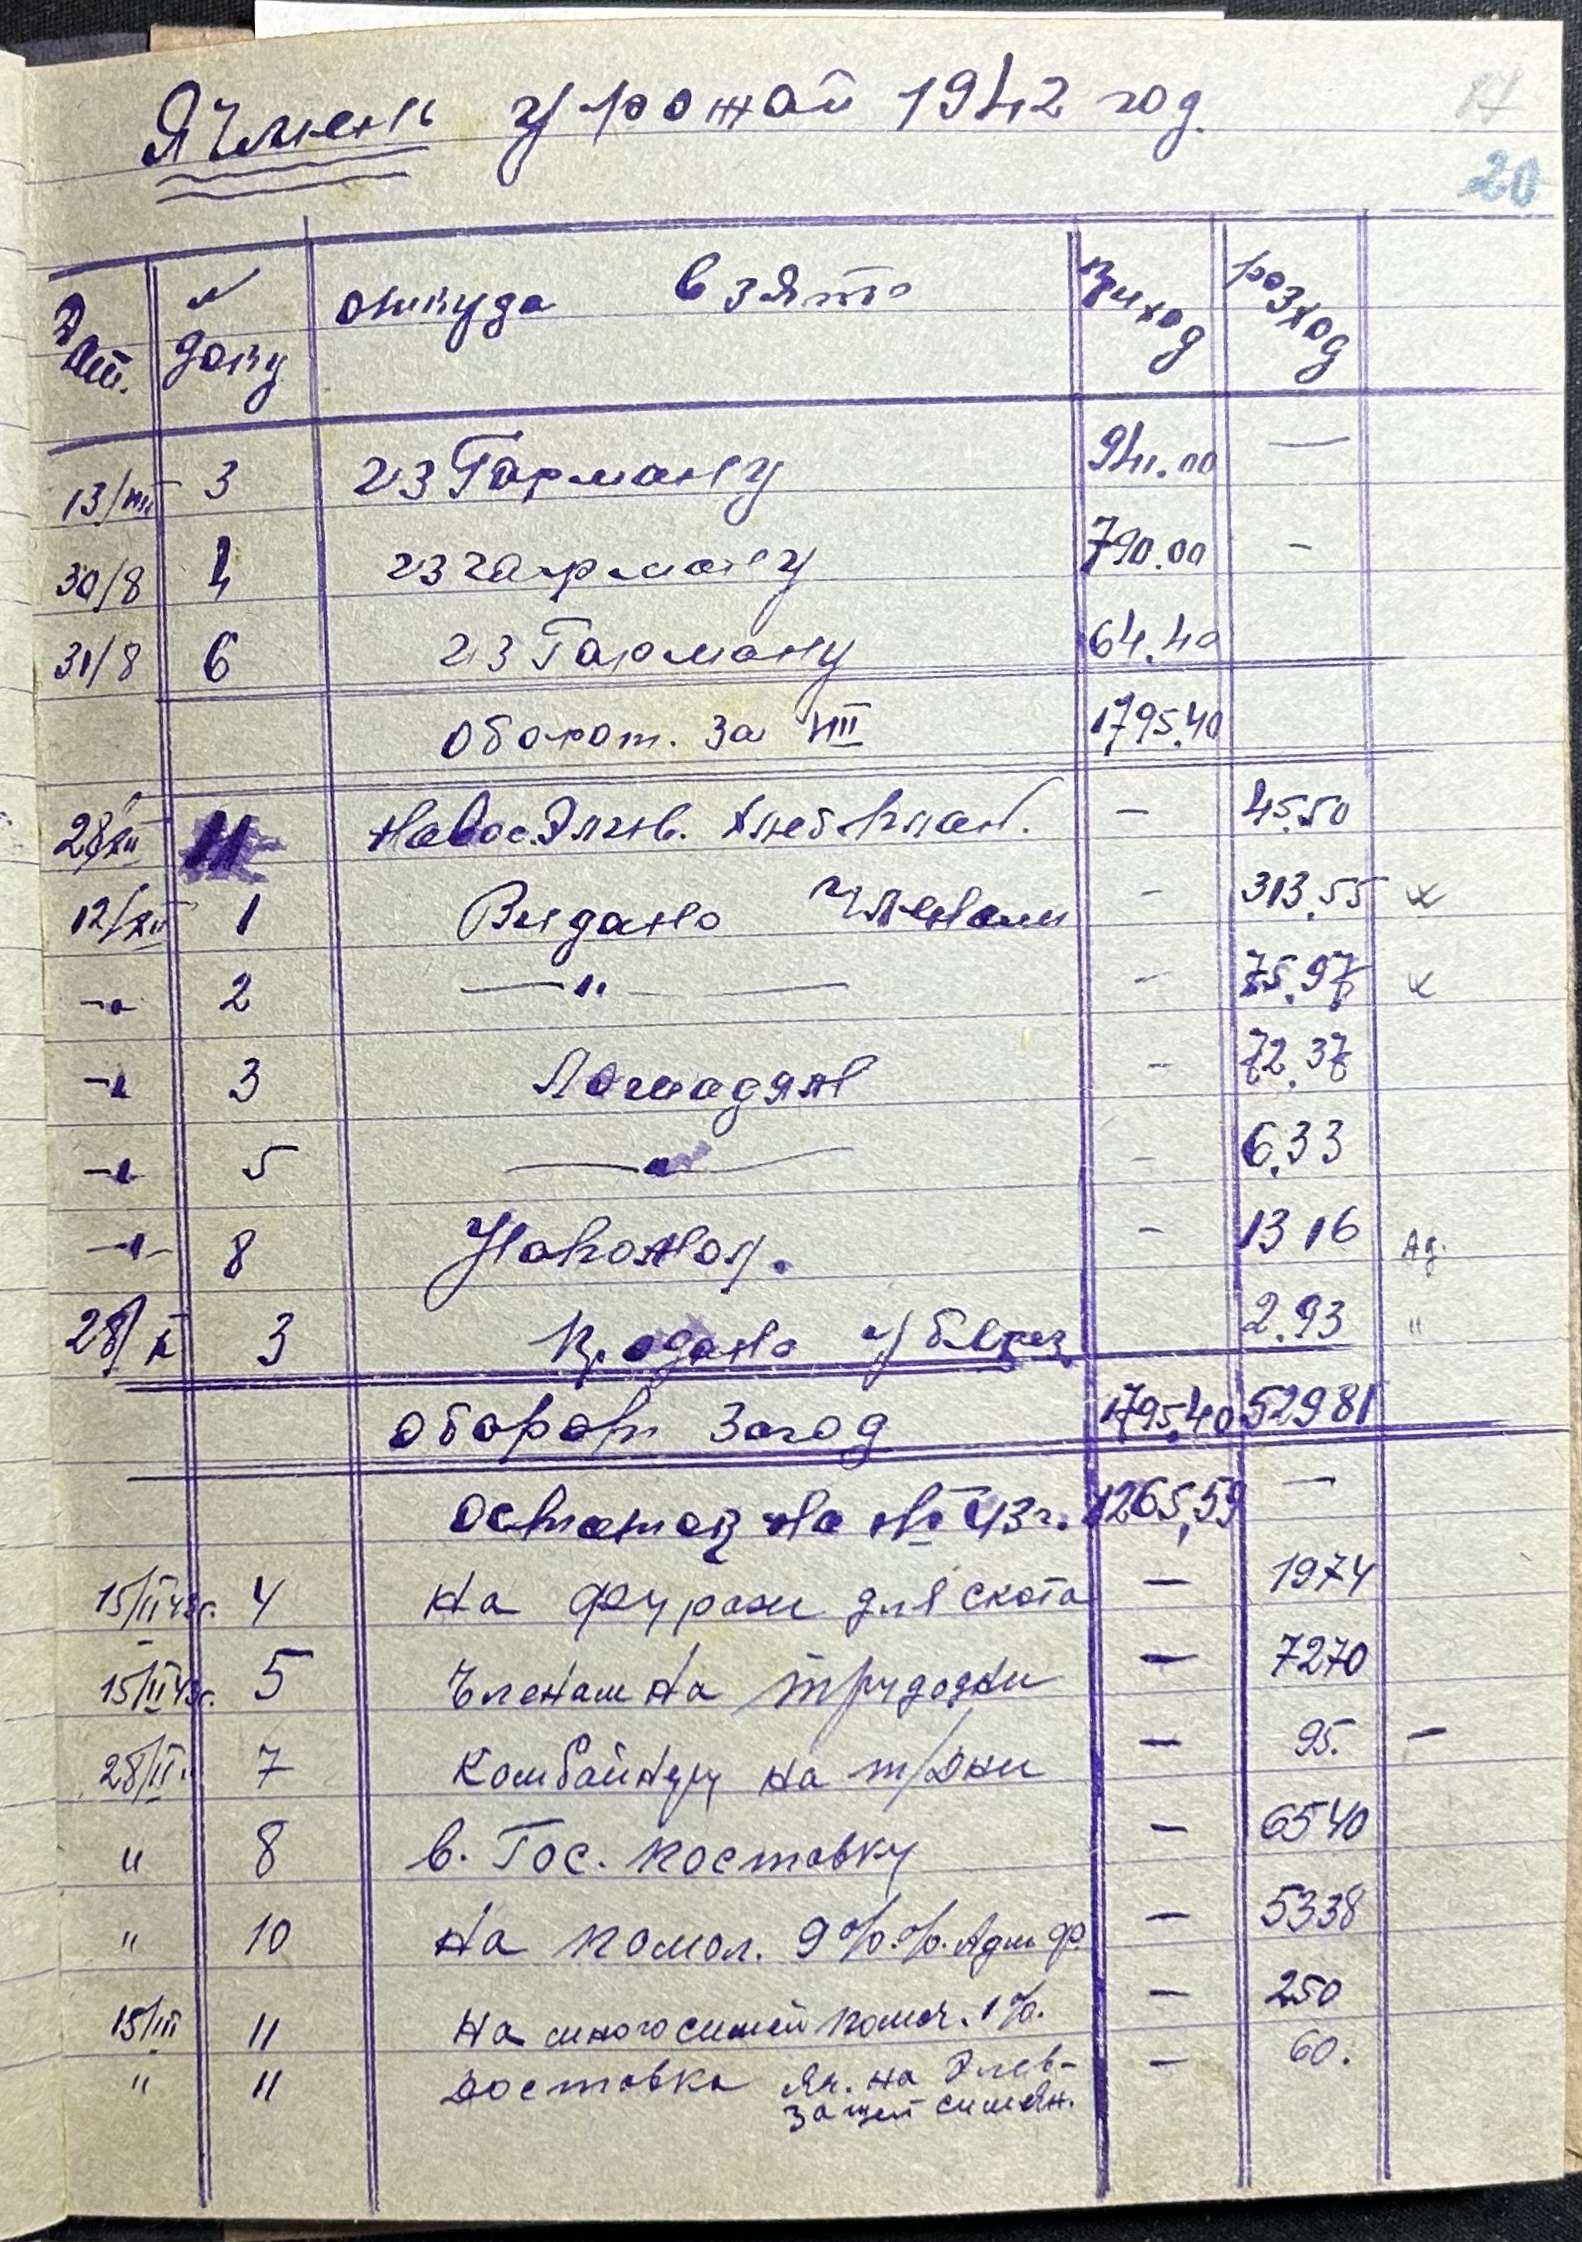 Ячмень урожай 1942 год.
20
Дат. № доку откуда взято Приход розход
13/VIII 3 из Гарману 941.00 —
30/8 4 из гарману 790.00 -
31/8 6 из Гарману 64.40
оборот. за VIII 1795.40
28/XII 11 - 45.50
12/XII 1 Видано членам - 313.55 x
-"- 2 —"— - 75.97 x
-"- 3 Лошадям - 72.37
-"- 5 —"— - 6.33
-"- 8 - 13 16 Ад.
28/X 3 Продано 2.93 "
оборот за год 1795.40 529 81
остаток на 43 г. 1265,59 —
15/II 43г. 4 На фураж для скота — 1974
15/II 43г. 5 Членам на трудодни — 7270
28/II. 7 Комбайнеру на т/дни — 95. —
" 8 в. Гос. поставку — 6540
" 10 На помол. 9%.%. Адм. ф. — 5338
15/III 11 На многосемей помоч. 1%. — 250
" 11 Доставка Яч. на Элев- — 60.
за семян.